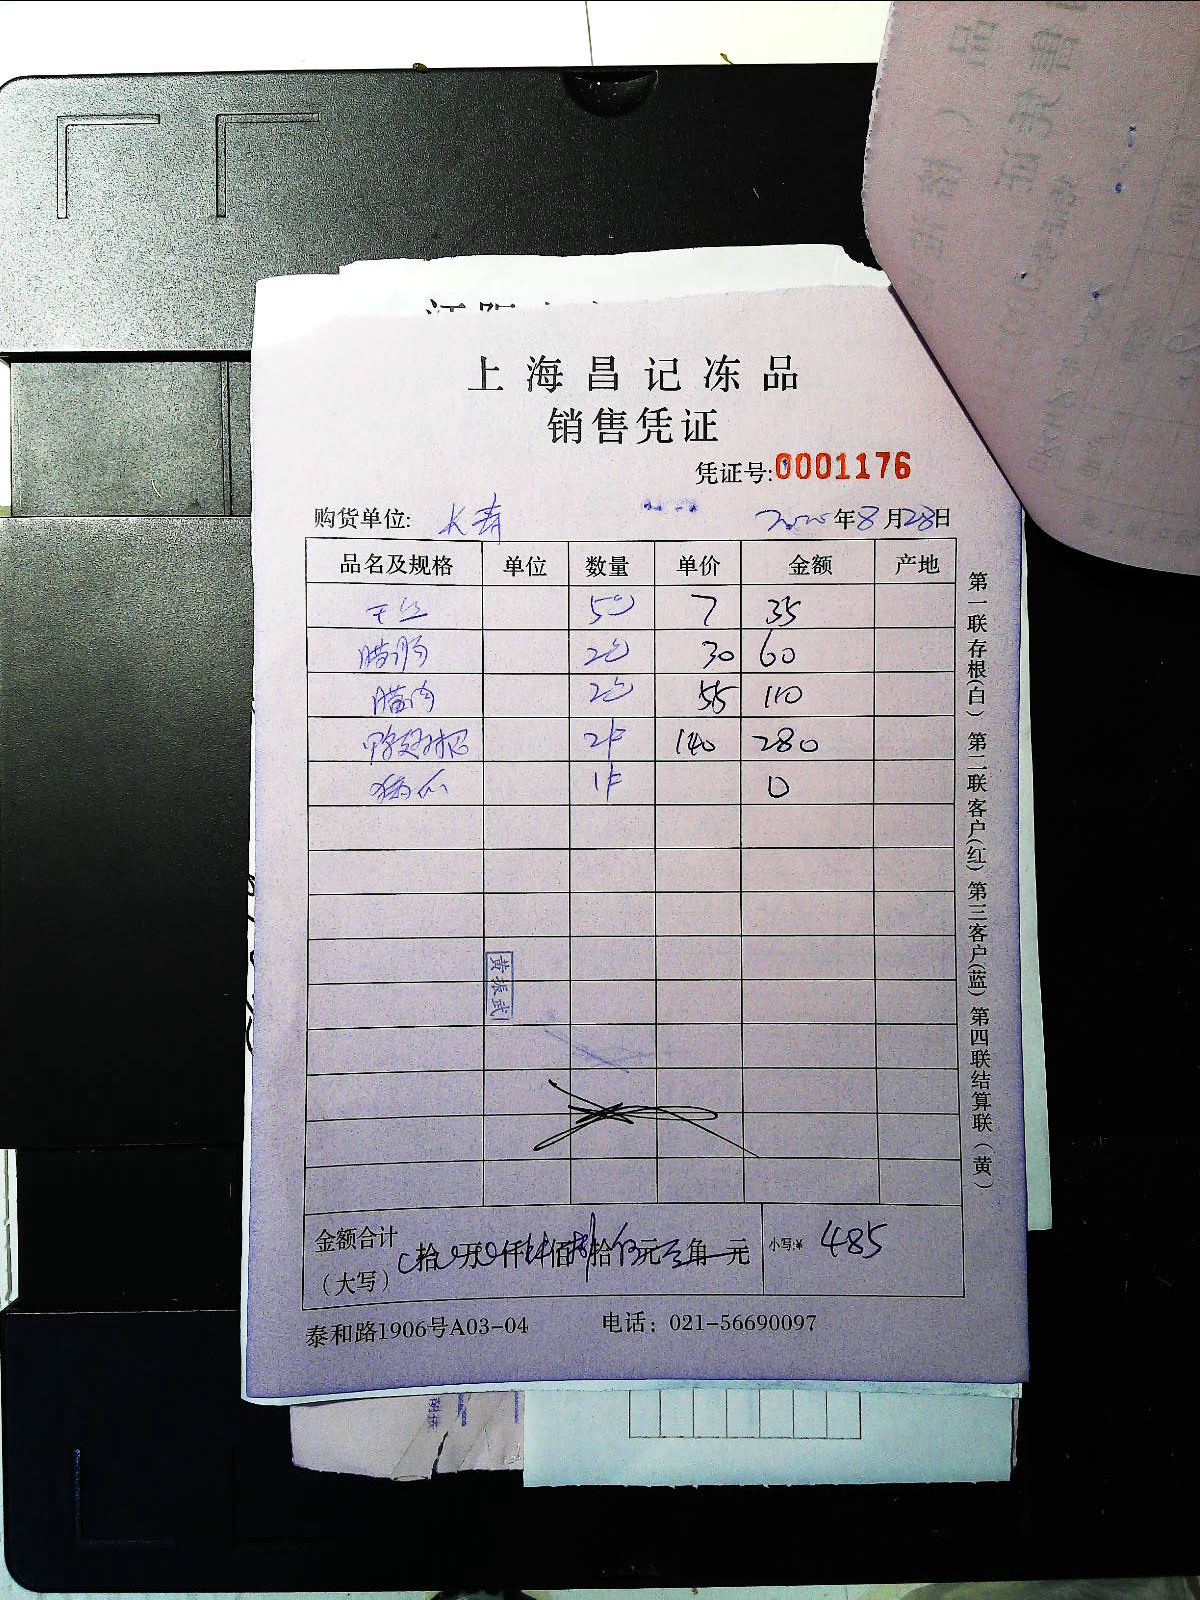 上海昌记冻品
销售凭证
凭证号:0001176
购货单位: 长青 2020年8月28日
品名及规格 单位 数量 单价 金额 产地
干丝 5包 7 35
腊肠 2包 30 60
腊肉 2包 55 110
2件 140 280
1件 0
黄振武
金额合计 拾 万 仟 佰 拾 元 角 元 小写:¥ 485
(大写)
泰和路1906号A03-04 电话：021-56690097
第一联存根(白) 第二联客户(红) 第三客户(蓝) 第四联结算联(黄)